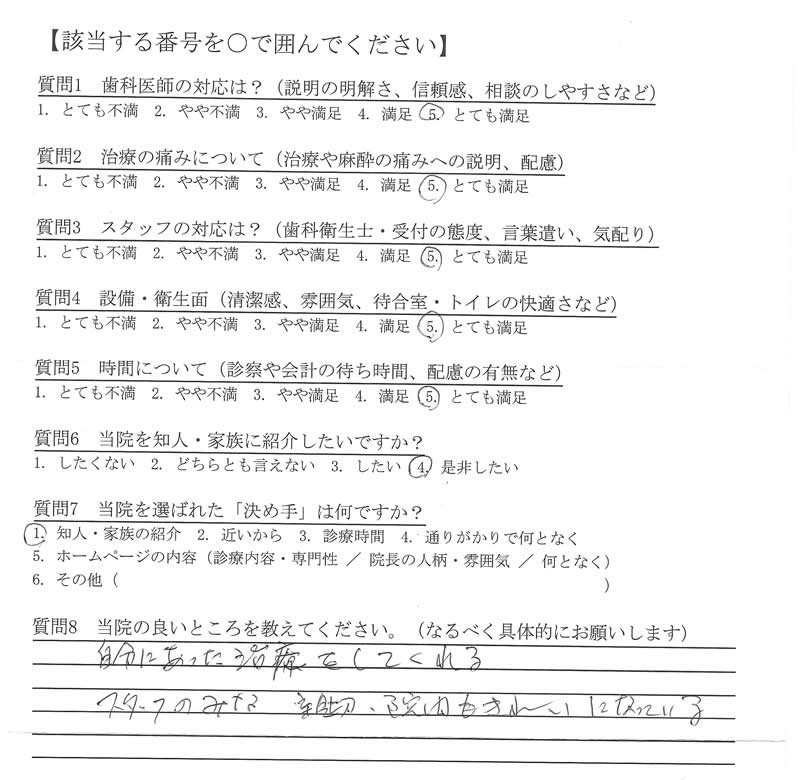 【該当する番号を○で囲んでください】
質問1 歯科医師の対応は？（説明の明解さ、信頼感、相談のしやすさなど）
1. とても不満 2. やや不満 3. やや満足 4. 満足 5. とても満足
質問2 治療の痛みについて（治療や麻酔の痛みへの説明、配慮）
1. とても不満 2. やや不満 3. やや満足 4. 満足 5. とても満足
質問3 スタッフの対応は？（歯科衛生士・受付の態度、言葉遣い、気配り）
1. とても不満 2. やや不満 3. やや満足 4. 満足 5. とても満足
質問4 設備・衛生面（清潔感、雰囲気、待合室・トイレの快適さなど）
1. とても不満 2. やや不満 3. やや満足 4. 満足 5. とても満足
質問5 時間について（診察や会計の待ち時間、配慮の有無など）
1. とても不満 2. やや不満 3. やや満足 4. 満足 5. とても満足
質問6 当院を知人・家族に紹介したいですか？
1. したくない 2. どちらとも言えない 3. したい 4. 是非したい
質問7 当院を選ばれた「決め手」は何ですか？
1. 知人・家族の紹介 2. 近いから 3. 診療時間 4. 通りがかりで何となく
5. ホームページの内容（診療内容・専門性 ／ 院長の人柄・雰囲気 ／ 何となく）
6. その他（ ）
質問8 当院の良いところを教えてください。（なるべく具体的にお願いします）
自分にあった治療をしてくれる
スタッフのみな 親切、院内もきれいになっている